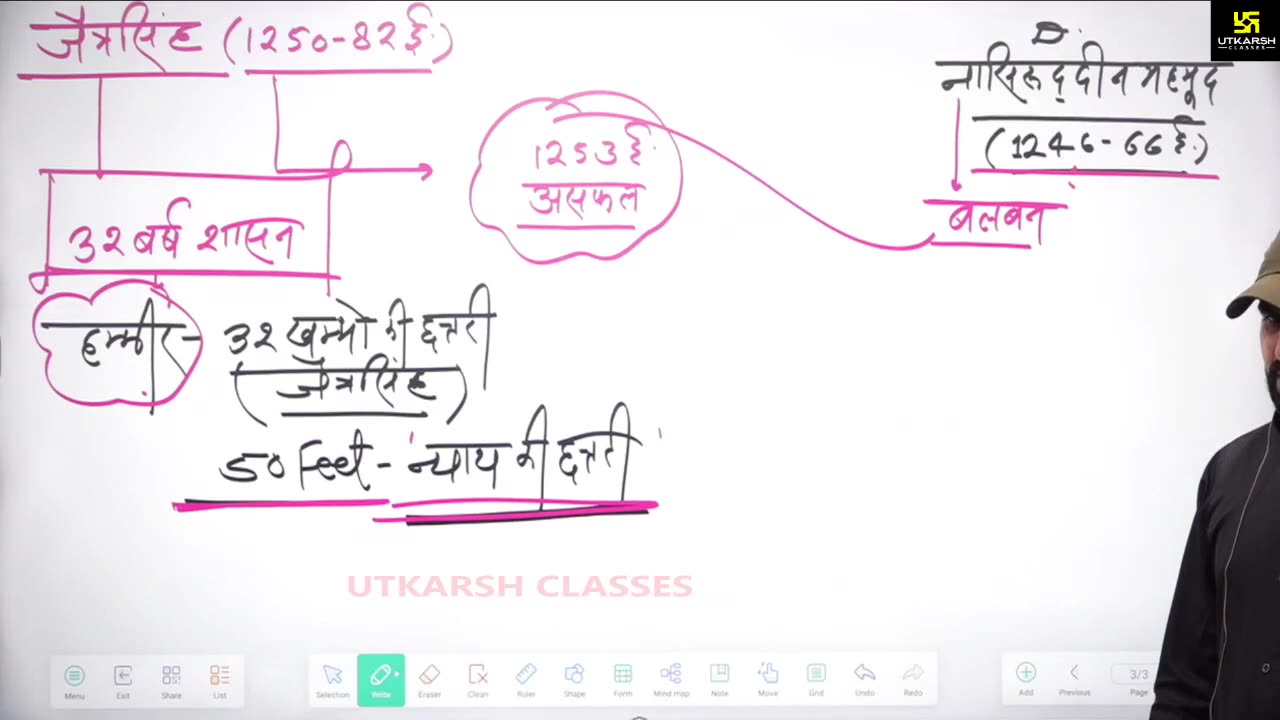 जैत्रसिंह (1250-82 ई.)
UTKARSH
CLASSES
D.
नासिरूद्दीन महमूद
(1246-66 ई.)
बलबन
1253 ई.
असफल
32 वर्ष शासन
हम्मीर - 32 खम्भो की छत्तरी
(जैत्रसिंह)
50 Feet - 'न्याय की छत्तरी'
UTKARSH CLASSES
Menu Exit Share List Selection Write Eraser Clean Ruler Shape Form Mind map Note Move Grid Undo Redo Add Previous 3/3 Page